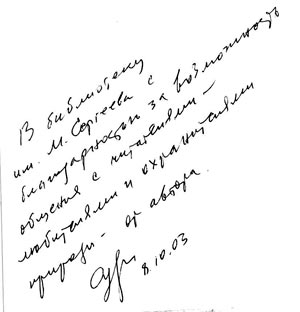 В библиотеку
им. М. Сергеева с
благодарностью за возможность
общения с читателями –
любителями и охранителями
природы – от автора.
8.10.03